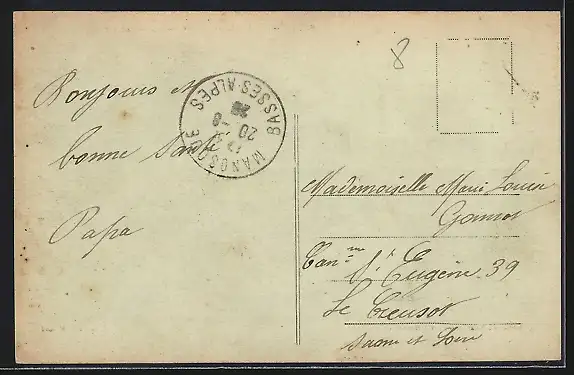 8
Bonjours et
bonne Santé
Papa
MANOSQUE
BASSES-ALPES
20 -8
Mademoiselle Marie Louise
St Eugène 39
Le Creusot
Saone et Loire